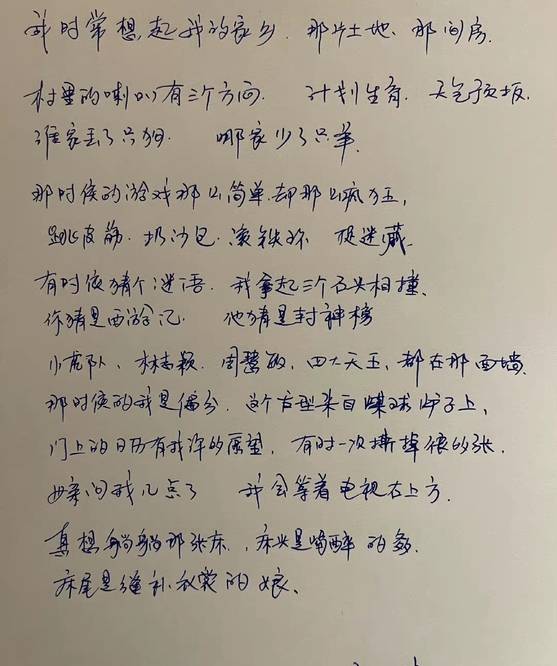 我时常想起我的家乡. 那片土地、那间房.
村里的喇叭有三个方向. 计划生育. 天气预报.
谁家丢了只狗. 哪家少了只羊.
那时候的游戏那么简单.却那么疯狂,
跳皮筋.扔沙包.滚铁环 捉迷藏.
有时候猜个谜语. 我拿起三个石头相撞、
你猜是西游记. 他猜是封神榜
小虎队、林志颖. 周慧敏, 四大天王, 都在那面墙.
那时候的我是偏分. 这个发型来自煤球炉子上,
门上的日历有我许的愿望, 有时一次撕掉很多张.
母亲问我几点了 我会等着电视右上方.
真想躺躺那张床., 床头是喝醉的爹.
床尾是缝补衣裳的娘.